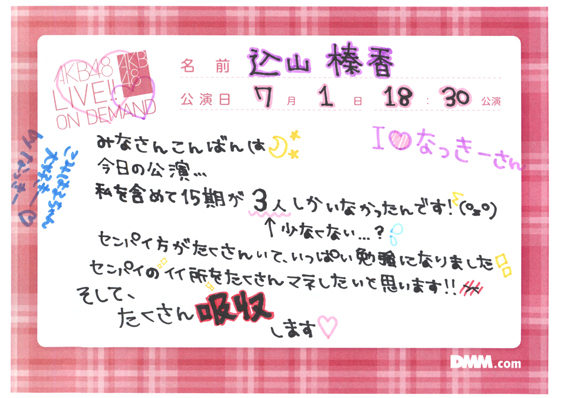 AKB48
LIVE!!
ON DEMAND
AKB
48
名前 込山 榛香
公演日 7月 1日 18:30 公演
I♡なっきーさん
みなさんこんばんは
今日の公演…
私を含めて15期が3人しかいなかったんです!
↑少なくない…?
センパイ方がたくさんいて、いっぱい勉強になりました
センパイのイイ所をたくさんマネしたいと思います!!
そして、
たくさん吸収
します♡
DMM.com